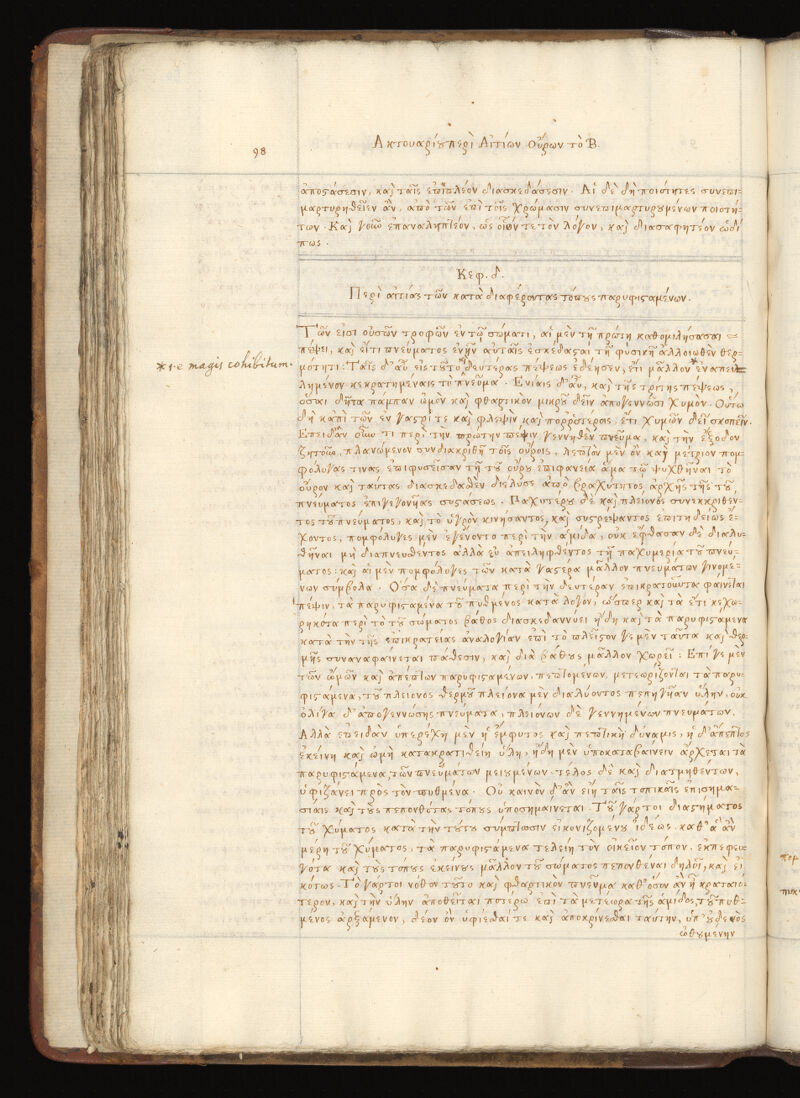 98
Ακτουαρίου περὶ Αἰτιῶν Οὔρων τὸ Β.
ἀποστάσεσιν, καὶ ταῖς ἐπιπλέον διασκεδάσεσιν. Αἱ δὲ δὴ ποιότητες συνεπι-
μαρτυρηθεῖεν ἂν, ἀπὸ τῶν ἐπὶ τοῖς χρώμασιν συνεπιμαρτυρουμένων ποιοτή-
των. Καὶ γοῦν ἐπαναληπτέον, ὡς οἷόν τε τὸν λόγον, καὶ διασαφητέον ὡδί
πως.
Κεφ. δ.
Περὶ αἰτίας τῶν κατὰ διαφέροντας τόπους παρυφισταμένων.
Τῶν εἰσι οὐσῶν τροφῶν ἐν τῷ σώματι, αἱ μὲν τῇ πρώτῃ καθομιλήσασαι
πέψει, καὶ εἴ τι πνεύματος ἐνῆν αὐταῖς ἐσκέδασται τῇ φυσικῇ ἀλλοιωθὲν θερ-
*i.e magis cohibitum.
μότητι: Ταῖς δ' αὖ εἰς τοῦτο δευτέρας πέψεως ἐδέησεν, ἔτι μᾶλλον *ἐναπει-
λημένον κεκρατημέναις τὸ πνεῦμα. Ἐνίαις δ' αὖ, καὶ τῆς τρίτης πέψεως,
ὅσαι δῆτα πάμπαν ὠμὸν καὶ φθαρτικὸν μικροῦ δεῖν ἀπογεννῶσι χυμὸν. Οὕτω
δὴ κἀπὶ τῶν ἐν γαστρί τε καὶ φλεψὶν καὶ πορρωτέροις, ἔτι χυμῶν δεῖ σκοπεῖν.
Ἐπειδὰν οὖν τι περὶ τὴν πρώτην πέψιν γεννηθὲν πνεῦμα, καὶ τὴν ἔξοδον
ζητοῦν, πλανώμενον συνδιακριθῇ τοῖς οὔροις, λεπτὸν μὲν ὂν καὶ μέτριον πομ-
φόλυγας τινας ἐπιφυσεῖσαν τῇ τοῦ οὔρου ἐπιφανείᾳ ἅμα τῷ ψυχθῆναι τὸ
οὖρον καὶ ταύτας διασκεδασθὲν διέλυσε ἀπὸ βραχύτητος ἀρχῆς τῆς τοῦ
πνεύματος ἐπιγεγονήας συστάσεως. Παχυτέρου δὲ καὶ πλείονος συνεκκριθέν-
τος τοῦ πνεύματος, καὶ τὸ ὑγρὸν κινήσαντος, καὶ συστρέψαντος ἐπιτηδείως ἔ-
χοντος, πομφόλυγες μὲν ἐγένοντο περὶ τὴν ἀμίδα, οὐκ ἔφθασαν δὲ διαλυ-
θῆναι μὴ διαπνευθέντος ἀλλὰ εὖ ἀπειληφθέντος τῇ παχυμερίᾳ τοῦ πνεύ-
ματος: καὶ αἱ μὲν πομφόλυγες τῶν κατὰ γαστέρα μᾶλλον πνευμάτων γινομέ-
νων σύμβολα. Ὅσα δὲ πνεύματα περὶ τὴν δευτέραν ἐπικρατοῦντα φαίνεται
πέψιν, τὰ παρυφιστάμενα τοῦ πυθμένος κατὰ λόγον, ὥσπερ καὶ τὰ ἔτι κεχω-
ρηκότα περὶ τὸ τοῦ σώματος βάθος διασκεδαννύει ἤδη καὶ τὰ παρυφιστάμενα
κατὰ τὴν τῆς ἐπικρατείας ἀναλογίαν ἐπὶ τὸ πλεῖστον γε μὲν ταῦτα καὶ θέρ-
μης συναναφαίνεται πάθεσιν, καὶ διὰ βάθους μᾶλλον χωρεῖ: Ἐπί γε μὲν
τῶν ὠμῶν καὶ ἀπέπτων παρυφισταμένων, πεπτομένων, μετεωρίζονται τὰ παρυ-
φιστάμενα, τοῦ πλείονος θερμοῦ πλείονα μὲν διαλύοντος πεπηγῆαν ὕλην, οὐκ
ὀλίγα δ' ἀπογεννώσης πνεύματα, πλειόνων δὲ γεννημένων πνευμάτων.
Ἀλλὰ ἐπειδὰν ὑπερέχῃ μὲν ἡ ἔμφυτος καὶ πεπτικὴ δύναμις, ἡ δ' ἄπεπτος
ἐκείνη καὶ ὠμὴ κατακρατηθείη ὕλη, ἤδη μὲν ὑποκαταβαίνειν ἄρχεται τὰ
παρυφιστάμενα, τῶν πνευμάτων μειουμένων. τέλος δὲ καὶ διατμηθέντων,
ὑφιζάνει πρὸς τὸν πυθμένα. Οὐ καινὸν δ' ἂν εἴη ταῖς τοπικαῖς ἐπισημα-
σίαις καὶ τοὺς πεπονθότας τόπους ὑποσημαίνεται. Τοῦ γάρτοι διαστήματος
τοῦ χύματος κατὰ τὴν τούτου σύμπτωσιν εἰκονιζομένου ἰδέως. καθ' ἃ ἂν
μέρη τοῦ χύματος, τὰ παρυφιστάμενα τελείῃ τὸν οἰκεῖον τόπον, ἐκπεφευ-
γότα καὶ τοὺς τόπους ἐκείνους μᾶλλον τοῦ σώματος πεπονθέναι δηλοῖ, καὶ εἰ
κότως. Τὸ γάρτοι νόθον τοῦτο καὶ φθαρτικὸν πνεῦμα καθ' ὅσον ἂν ᾖ κραταιό-
τερον, καὶ τὴν ὕλην ἀποθεῖται ποτέρω ἐπὶ τὰ μετέωρα τῆς ἀμίδος, τοῦ πυθ-
μένος ἀρξάμενον, δέον ὂν ὑφίεσθαί τε καὶ ἀποκρίνεσθαι ταύτην, ὑπ' οὐδενὸς
ὠθουμένην